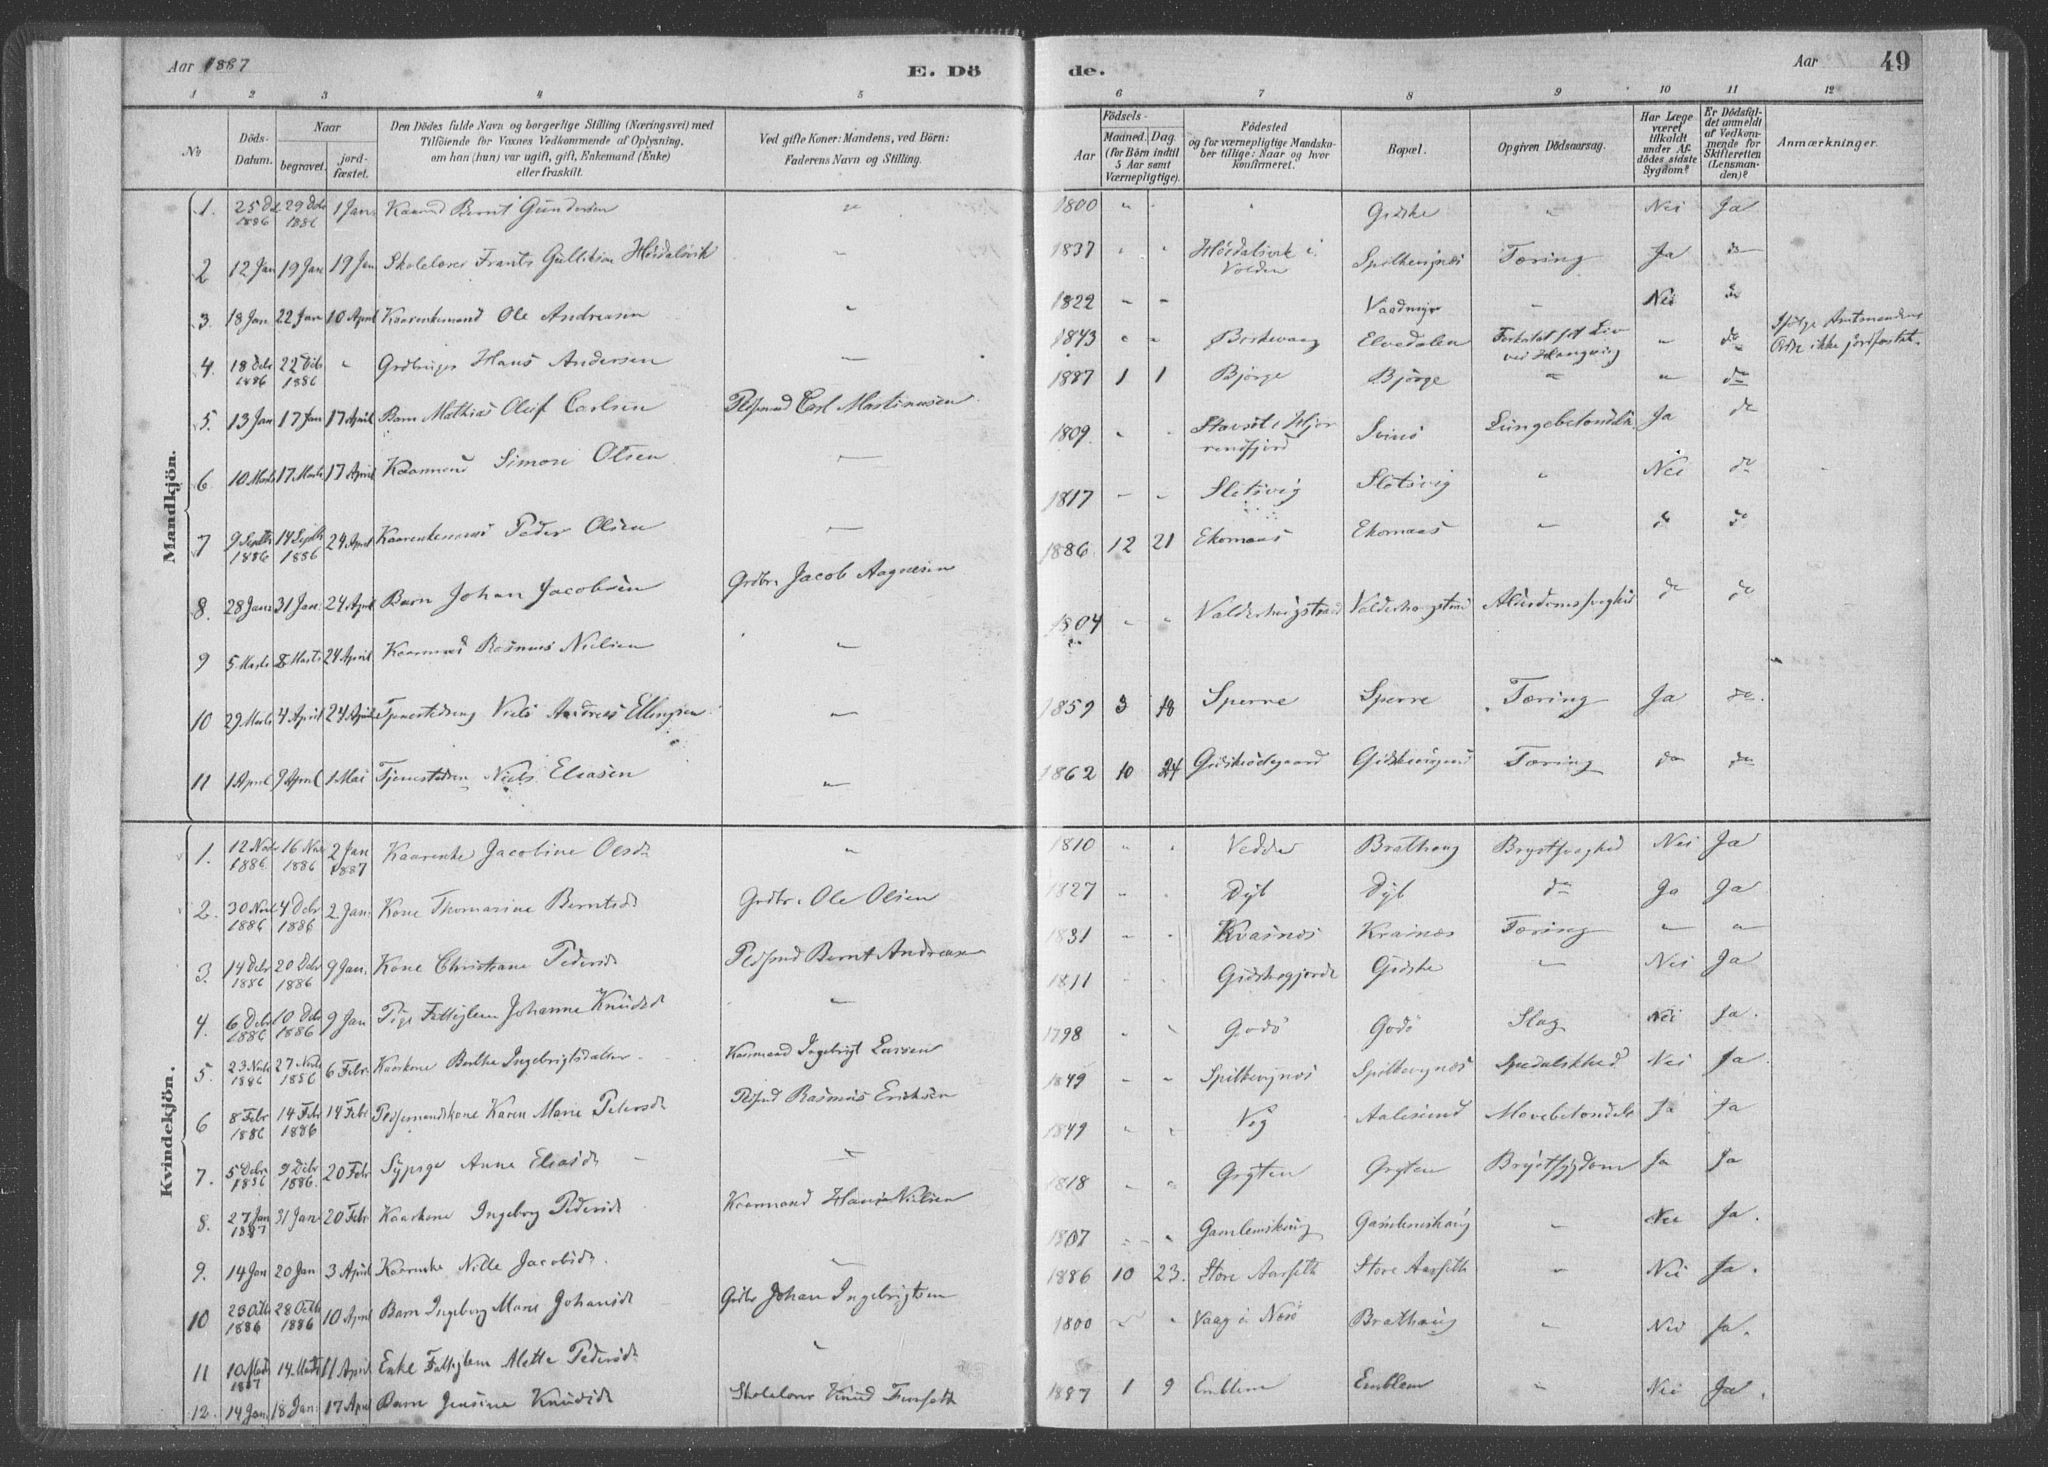 Aar 1887
E. Dö
de.
Aar
49
1 2 3 4 5 6 7 8 9 10 11 12
No
Döds-Datum.
Naar
begravet.
jord-fæstet.
Den Dödes fulde Navn og borgerlige Stilling (Næringsvei) med
Tilföiende for Voxnes Vedkommende af Oplysning,
om han (hun) var ugift, gift, Enkemand (Enke)
eller fraskilt.
Ved gifte Koner: Mandens, ved Börn:
Faderens Navn og Stilling.
Födsels-
Aar
Maaned. Dag.
(for Börn indtil
5 Aar samt
Værnepligtige).
Födested
og for værnepligtige Mandska-
ber tillige: Naar og hvor
konfirmeret.
Bopæl.
Opgiven Dödsaarsag.
Har Læge
været
tilkaldt
under Af-
dödes sidste
Sygdom?
Er Dödsfal-
det anmeldt
af Vedkom-
mende for
Skifteretten
(Lensman-
den)?
Anmærkninger.
Mandkjön.
1. 25 Dec 1886 29 Debr 1886 1 Jan. Kaarmd Bernt Gundersen " 1800 " " " Gidske " Nei Ja
2 12 Jan 19 Jan 19 Jan Skolelærer Frants Gulliksen Hösdalsvik " 1837 " " Hösdalsvik i Volden Spilkevignæs Tæring Ja do
3. 18 Jan 22 Jan 10 April Kaarenkemand Ole Andreasen " 1822 " " Nei do
4. 18 Debr 1886 22 Debr 1886 " Grdbruger Hans Andersen " 1843 " " Elvedalen " do Ifölge Amtmandens Ordre ikke jordfæstet.
5. 13 Jan 17 Jan 17 April Barn Mathias Oluf Carlsen Carl Martinusen 1887 1 1 Bjørge Bjørge " " do
6 10 Marts 17 Marts 17 April Kaarmand Simon Olsen " 1809 " " Hjorrendfjord Svinö Lungebetændelse Ja do
7 9 Septbr 1886 14 Septbr 1886 24 April Kaarenkemand Peder Olsen " 1817 " " Sletsvig Sletsvig " Nei do
8. 28 Jan 31 Jan. 24 April Barn Johan Jacobsen Grdbr. Jacob Aagnesen 1886 12 21 Ekornæs Ekornæs " do do
9 5 Marts 8 Marts 24 April Kaarmand Rasmus Nielsen " 1804 " " Valderhougstrand Valderhougstrand Alderdomssvaghed do do
10 29 Marts 4 April 24 April Tjenestedreng Niels Andreas Ellingsen " 1859 3 18 Sperre Sperre Tæring Ja do.
11 1 April 9 April 1 Mai Tjenestedren Niels Eliasen " 1862 10 24 Gidskeödegaard Tæring do do
Kvindekjön.
1. 12 Novbr 1886 16 Nov 1886 2 Jan 1887 Kaarenke Jacobine Olsdr " 1810 " " Vedde Brathoug Brystsvaghed Nei Ja
2. 30 Novbr 1886 4 Debr 1886 2 Jan. Kone Thomasine Berntsd Grdbr. Ole Olsen 1827 " " Dyb Dyb do Ja Ja
3. 14 Debr 1886 20 Debr 1886 9 Jan. Kone Christiane Pedersd Bernt Andreasen 1831 " " Kvasnæs Kvasnæs Tæring " "
4. 6 Debr 1886 10 Debr 1886 9 Jan Pige Fattiglem Johanne Knudsd " 1811 " " Gidskegjerde Gidske " Nei Ja
5. 23 Novbr 1886 27 Novbr 1886 6 Febr. Kaarkone Berthe Ingebrigtsdatter Kaarmand Ingebrigt Larsen 1798 " " Godö Godö Slag Nei Ja.
6 8 Febr 1886 14 Febr 1886 14 Febr Karen Marie Petersd Rasmus Eriksen 1849 " " Spilkevignæs Spilkevignæs Spedalskhed Nei Ja.
7. 5 Debr 1886 9 Debr 1886. 20 Febr Sypige Anne Eliasd " 1849 " " Vig Aalesund Mavebetændelse Ja Ja
8. 27 Jan 1887 31 Jan 20 Febr Kaarkone Ingeborg Pedersd Kaarmand Hans Nielsen 1818 " " Gryten Gryten Brystsygdom Ja Ja
9. 14 Jan 20 Jan 3 April Kaarenke Nille Jacobsd. " 1807 " " Gamlemshoug Gamlemshoug " Nei Ja.
10 23 Octbr 1886 28 Octbr 1886 10 April Barn Ingeborg Marie Johansd Grdbr Johan Ingebrigtsen 1886 10 23. Store Aarseth Store Aarseth " Nei Ja.
11 10 Marts 1887 14 Marts 11 April Enke Fattiglem Alette Pedersdr " 1800 " " Vaag i Nesö Brathoug " Nei Ja.
12. 14 Jan. 18 Jan. 17 April Barn Jensine Knudsd Skolelærer Knud Furseth 1887 1 9 Emblem Emblem " Nei Ja.